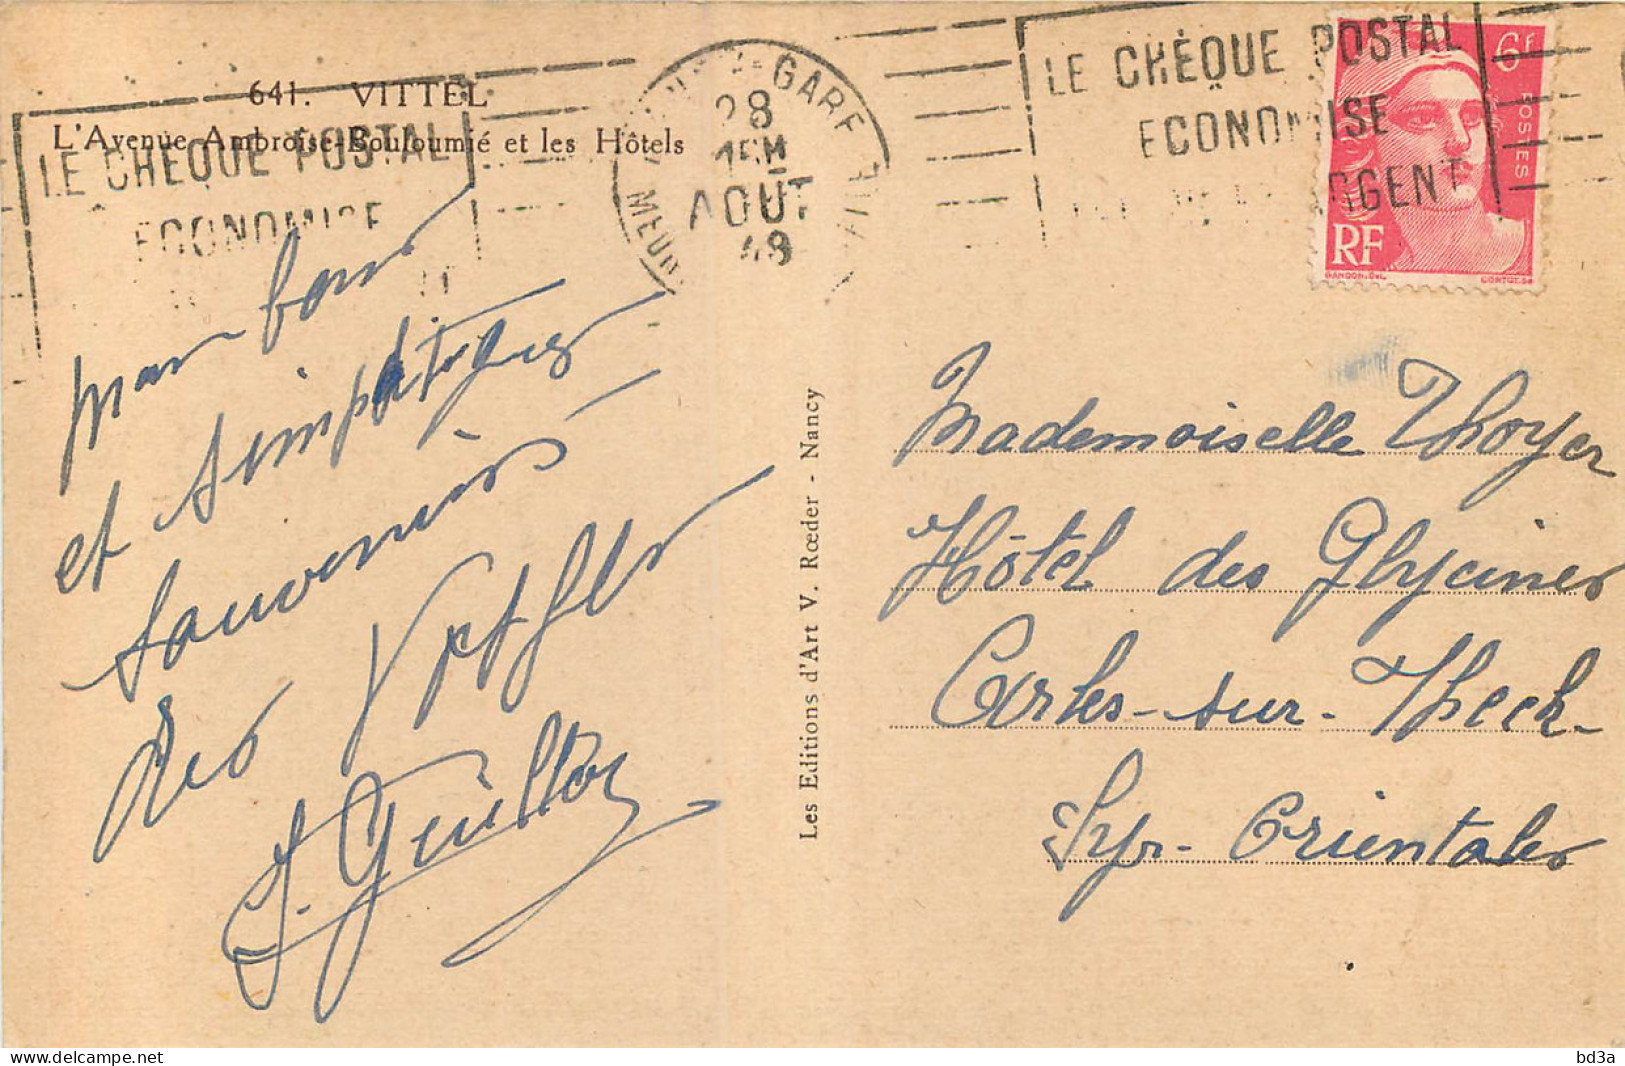 641. VITTEL
L'Avenue Ambroise-Bouloumié et les Hôtels
LE CHÈQUE POSTAL
ECONOMISE
28
15H
AOUT
48
GARE
MEUR
LE CHÈQUE POSTAL
ECONOMISE
ARGENT
6f
POSTES
RF
GANDON.DEL.
CORTOT.SC
bons
et simpatiques
souvenirs
des
J. Guillon
Les Editions d'Art V. Rœder - Nancy
Mademoiselle Thoyer
Hôtel des Glycines
Arles-sur-Thech-
Pyr-Orientales
bd3a